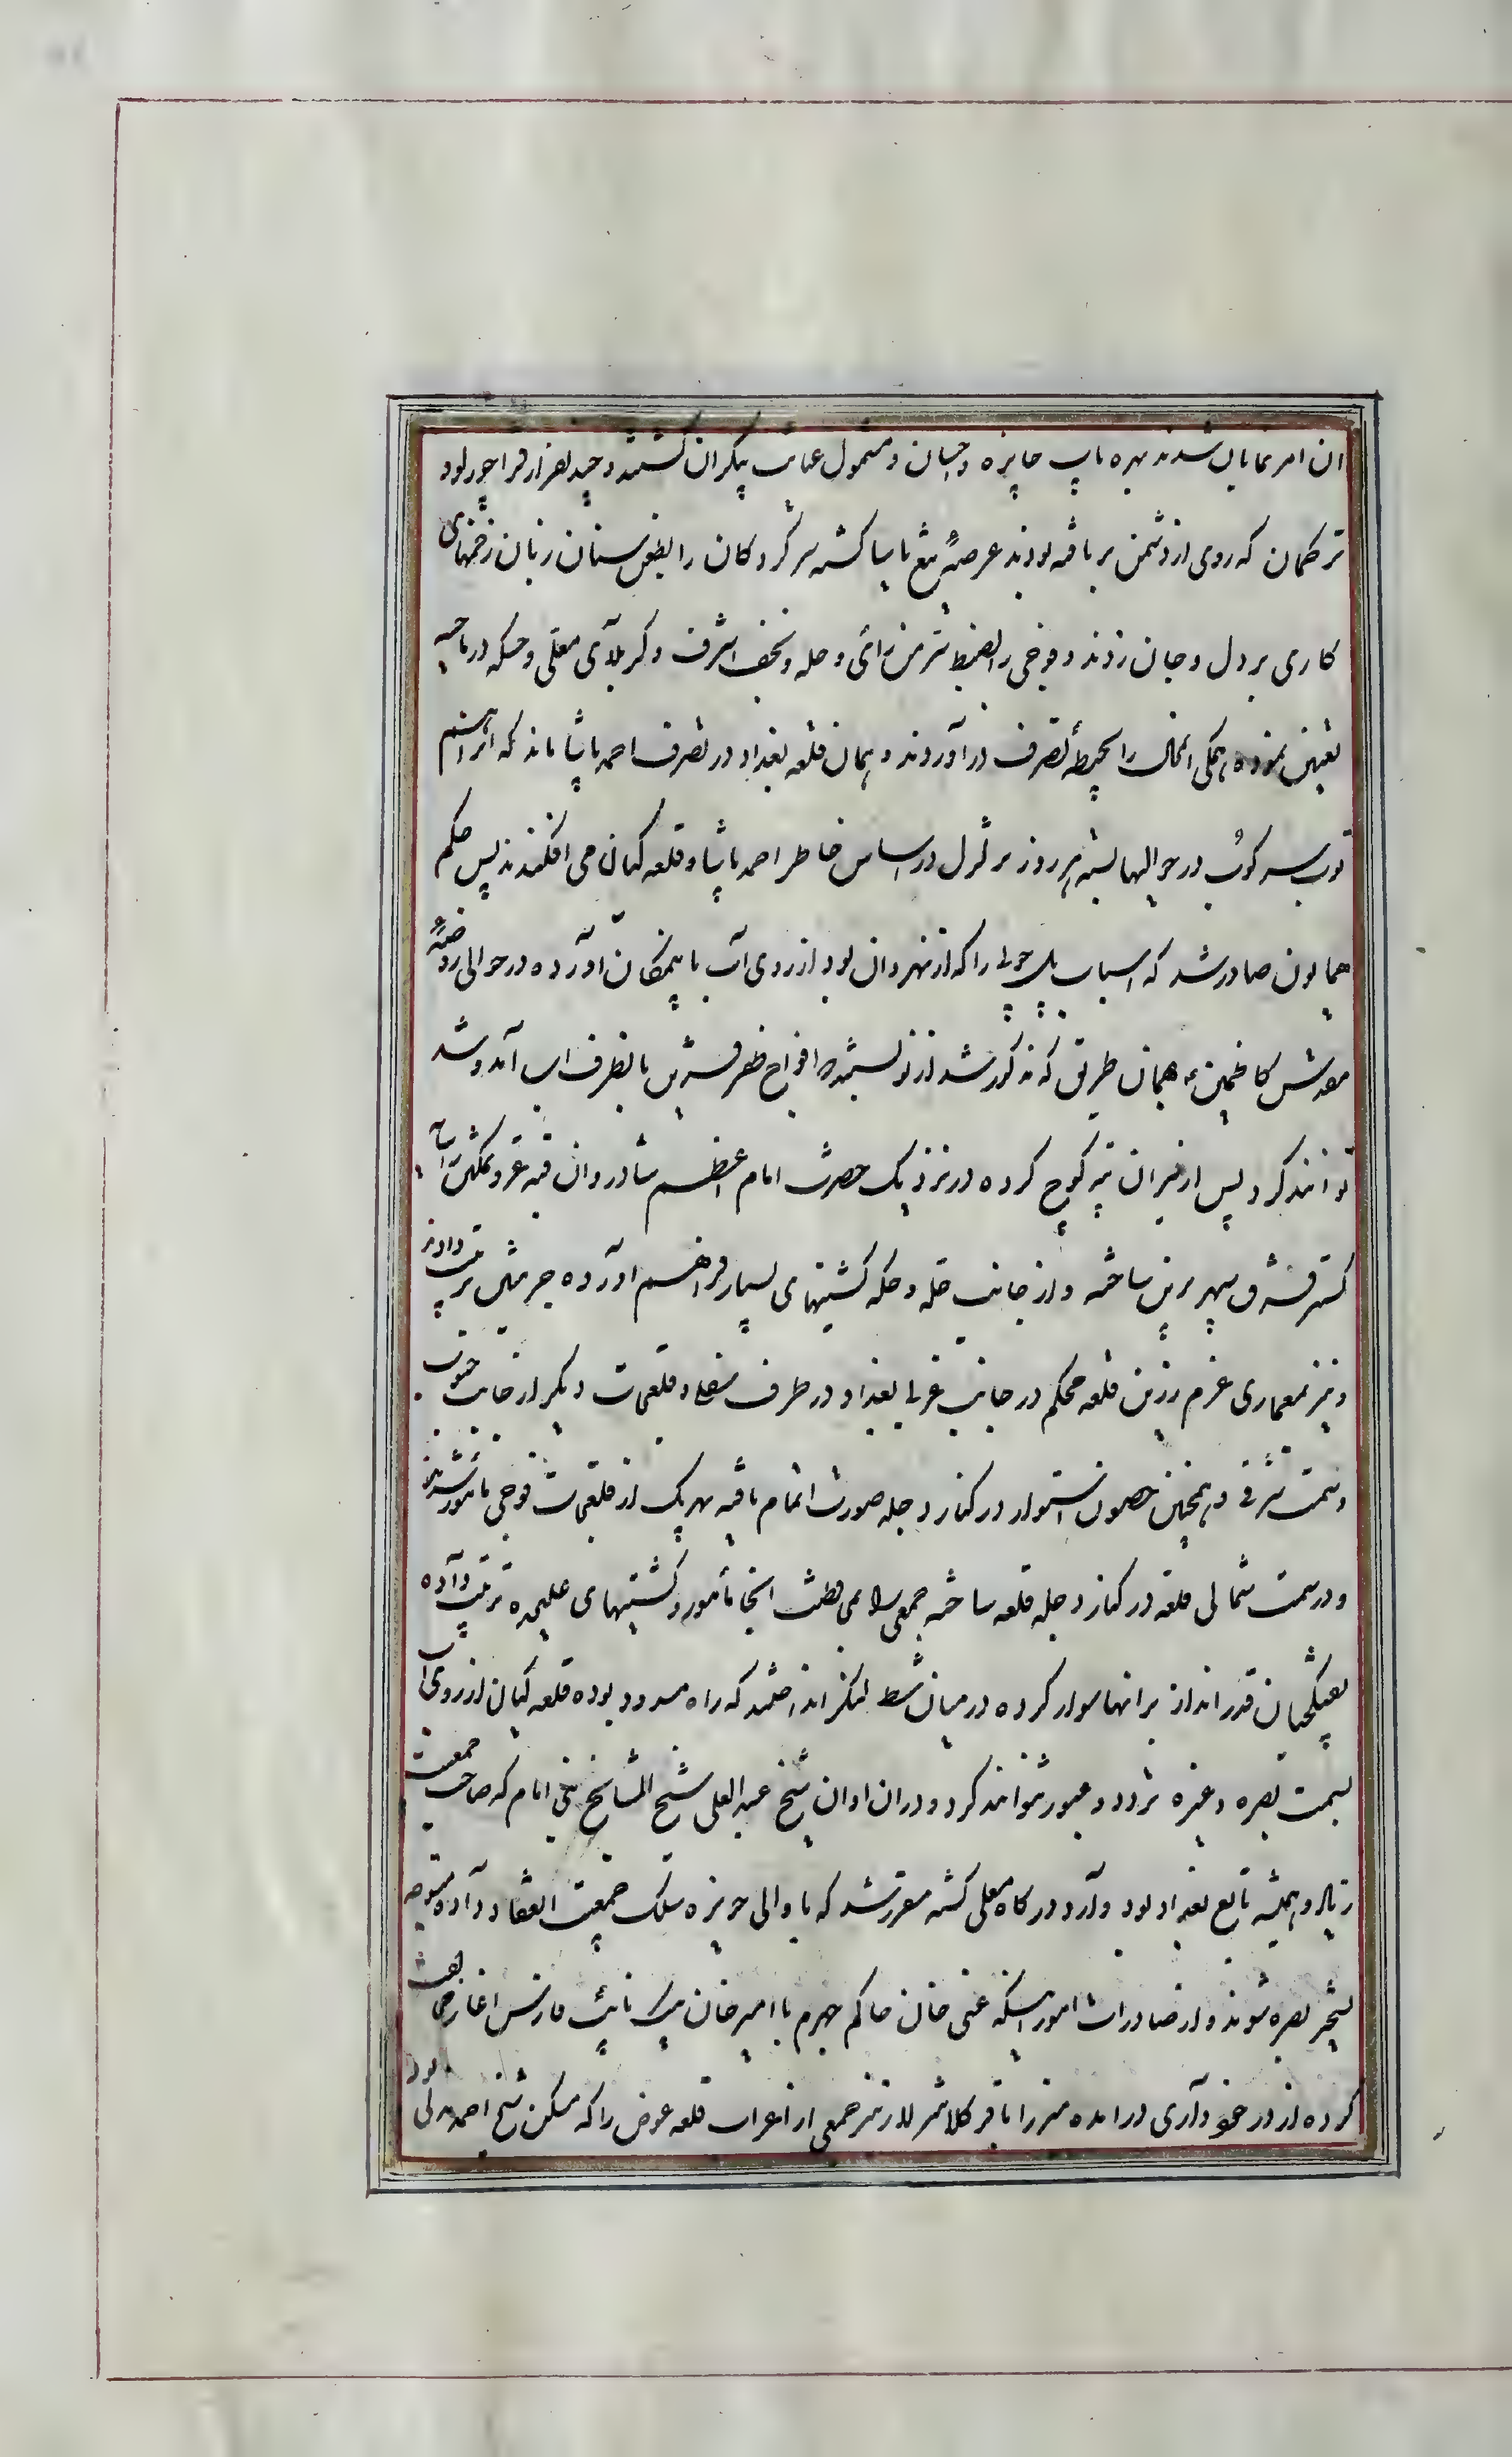 ان امر نمایان شدند بهره یاب جایزه و احسان و مشمول عنایت بیکران گشتند و چند نفر از قراچورلو و
ترکمان که روی از دشمن برتافته بودند عرصهٔ تیغ یاسا گشته سرکردگان را بطعن سنان زبان زخمهای
کاری بر دل و جان زدند و فوجی را بضبط سرمن رای و حله و نجف اشرف و کربلای معلی و حسکه و رماحیه
تعیین نموده همکی انمحال را بحیطهٔ تصرف در آوردند و همان قلعه بغداد در تصرف احمد پاشا ماند که انرا هم
توپ سر کوب در حوالیها بسته هر روز تزلزل در اساس خاطر احمد پاشا و قلعه کیان می افکندند پس حکم
همایون صادر شد که اسباب پل چوبی را که از نهروان بود از روی آب به پیمکان آورده در حوالی روضهٔ
مقدس کاظمین ع بهمان طریق که مذکور شد از نو بسته افواج ظفر قرین بانطرف اب آمد و شد
توانند کرد پس از نیزان نیز کوچ کرده در نزدیک حضرت امام اعظم شادروان قبه عز و تمکین را
کستر فرق سپهر برین ساخته و از جانب حله و حله کشتیهای بسیار فراهم آورده جسر متین ترتیب دادند
و نیز بمعماری عزم رزین قلعه محکم در جانب غربی بغداد در طرف سفلا و قلعجات دیگر از جانب جنوب
و سمت شرقی و همچنین حصون استوار در کنار دجله صورت اتمام یافته بهر یک از قلعجات فوجی مامور شدند
و در سمت شمالی قلعه در کنار دجله قلعه ساخته جمعی را بمحافظت انجا مأمور و کشتیهای علیحده ترتیب داده
تفنکچیان قدر انداز برانها سوار کرده در میان شط لنکر انداختند که راه مسدود بوده قلعه کیان از روی اب
بسمت بصره و غیره تردد و عبور نتوانند کرد و دران اوان شیخ عبد العلی شیخ المشایخ بنی لام که صاحب جمعیت
زیاد و همیشه تابع بغداد بود وارد درکاه معلی کشته مقرر شد که با والی حویزه سلک جمعیت انعقاد داده متوجه
تسخیر بصره شوند و از صادرات امور اینکه غنی خان حاکم جهرم با امیر خان بیک نایب فارس اغاز مخالفت
کرده از در خود داری در امده میرزا باقر کلانتر لار نیز جمعی از اعراب قلعه عوض را که مسکن شیخ احمد مدنی بود